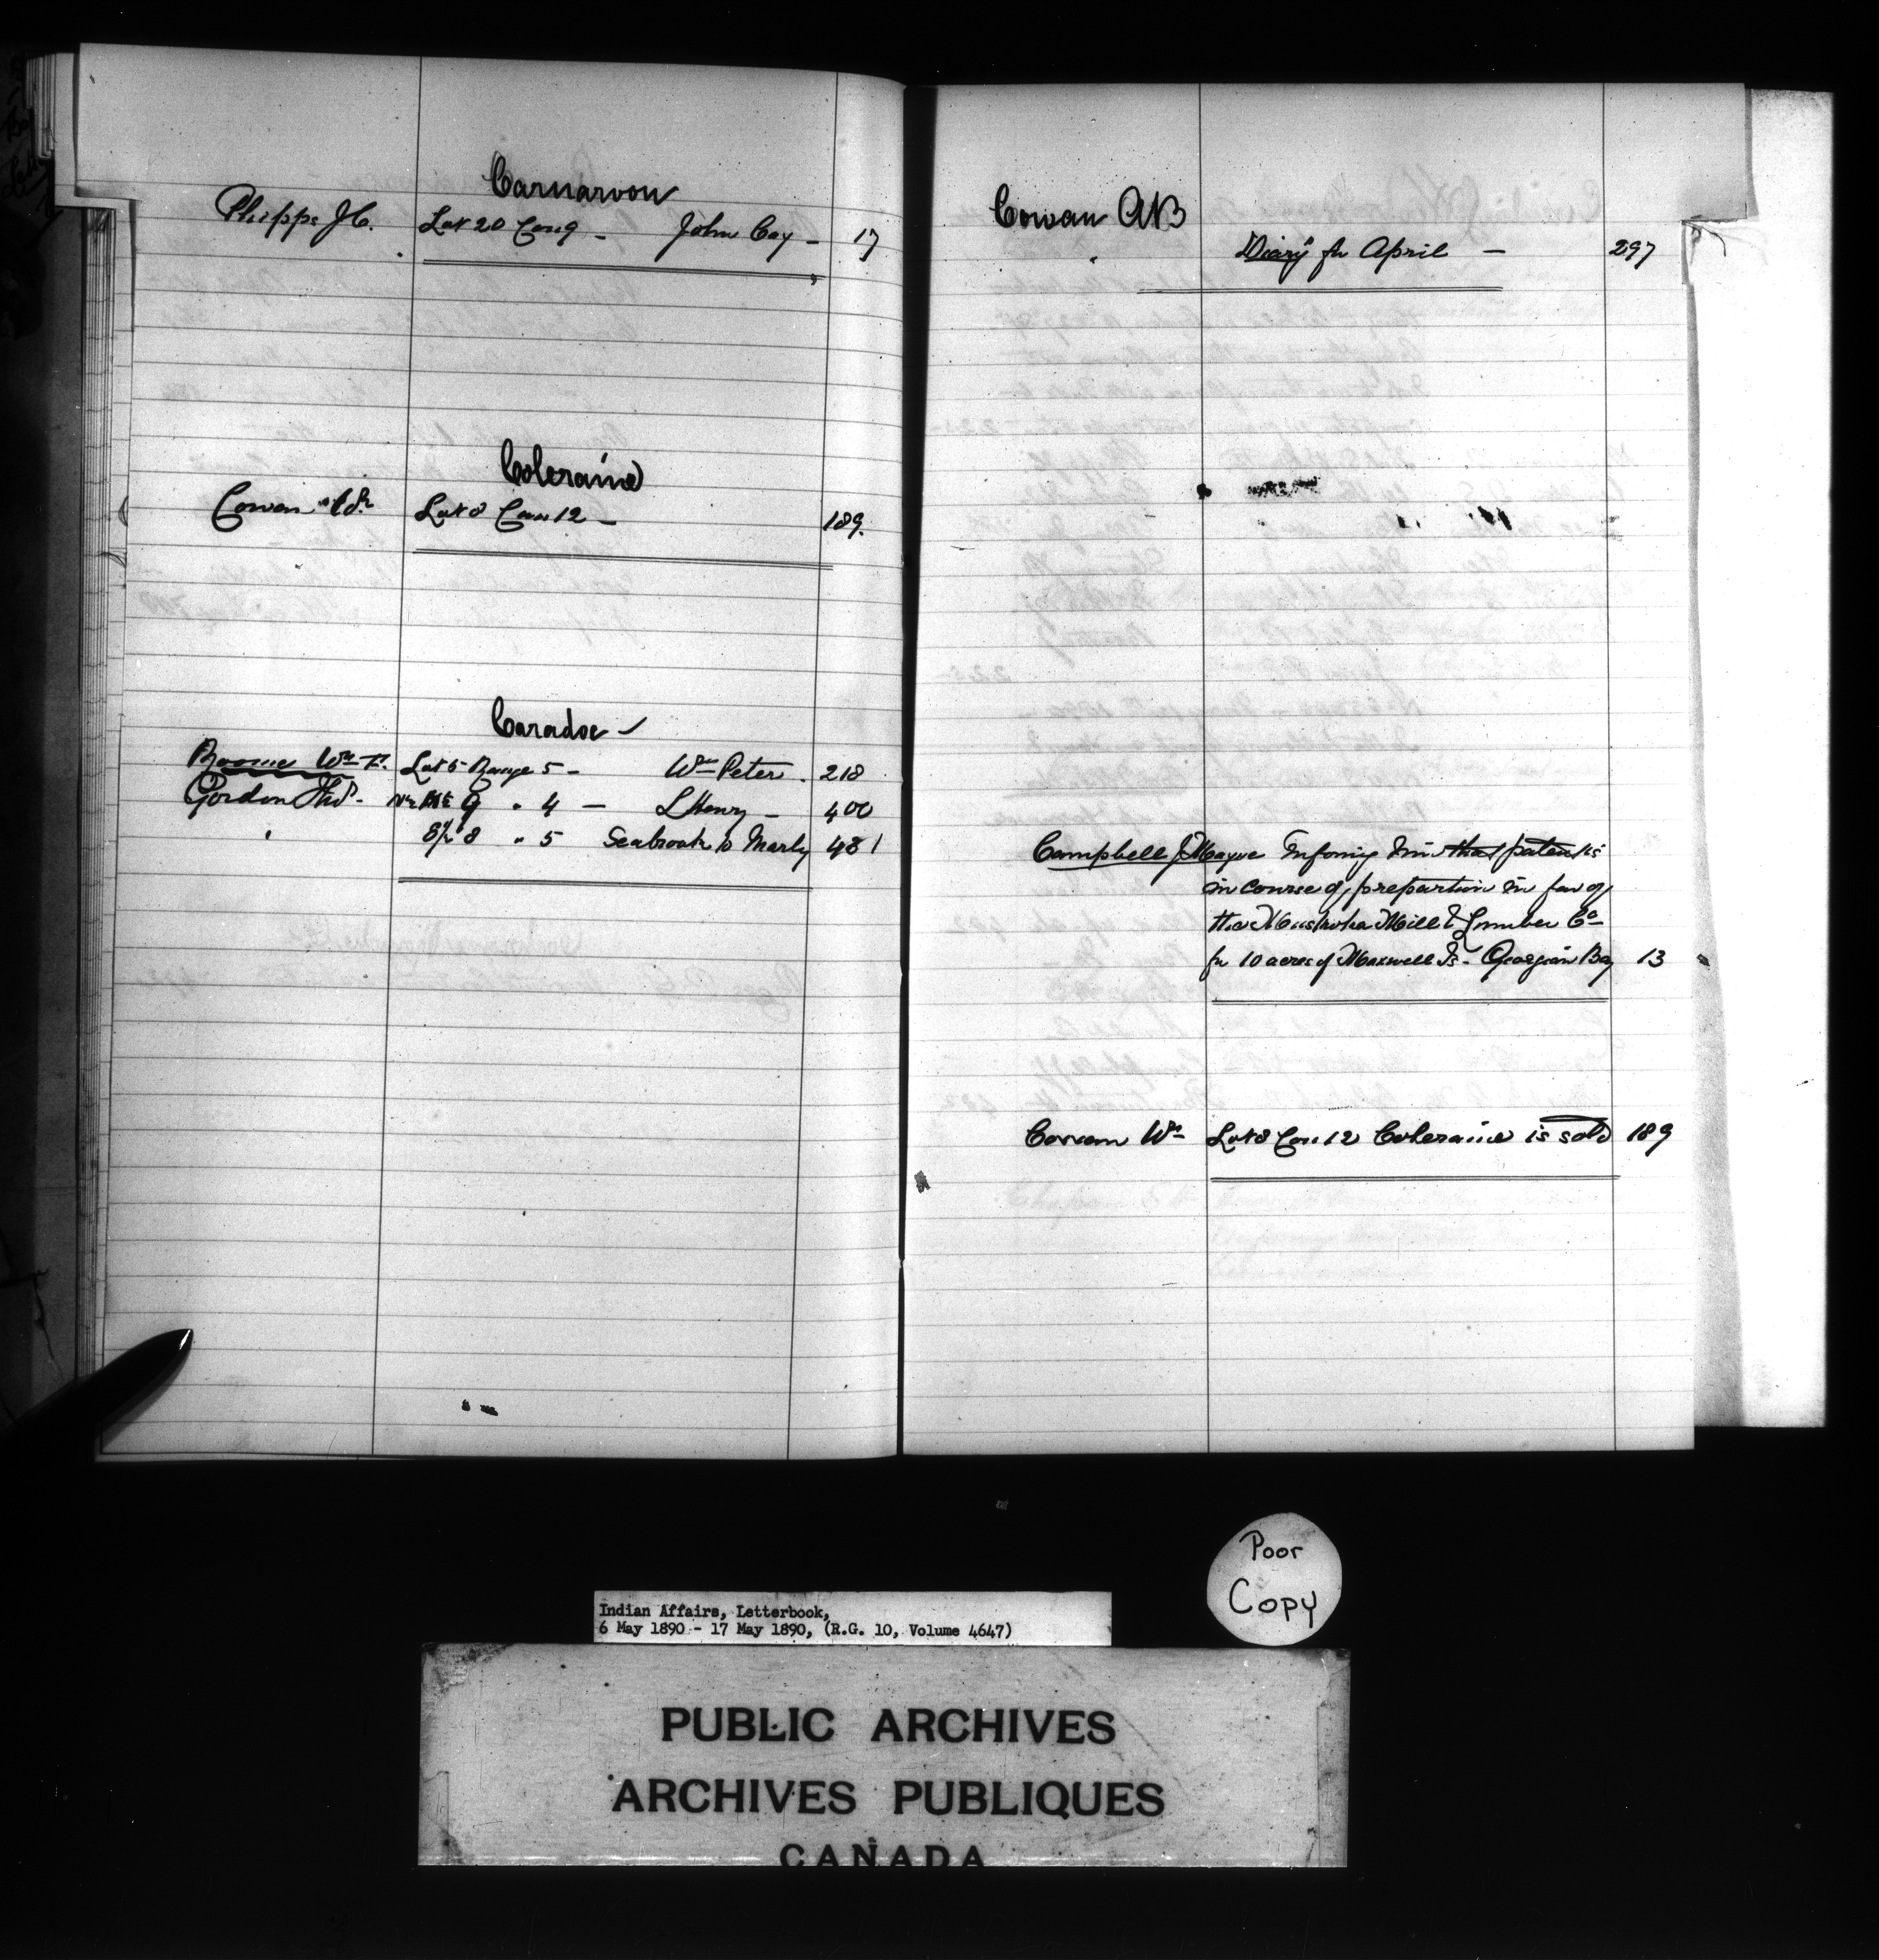 Carnarvon
Phipps J C. Lot 20 Con 9 - John Cay - 17
Coleraine
Cowan Wm Lot 8 Con 12 - 189.
Caradoc -
Wm F. Lot 5 Range 5 - Wm Peter. 218
Gordon Thos. 9 " 4 - L Henry - 400
" S½ 8 " 5 Seabrook to 481
Cowan AB
"Diary" for April - 297
Campbell J Mayne Informing him that patent is
in course of prepartion in fav of
the Muskoka Mill & Lumber Co
for 10 acres of Maxwell Is - Georgian Bay 13
Cowan Wm Lot 8 Con 12 Coleraine is sold 189
Poor
Copy
Indian Affairs, Letterbook,
6 May 1890 - 17 May 1890, (R.G. 10, Volume 4647)
PUBLIC ARCHIVES
ARCHIVES PUBLIQUES
CANADA